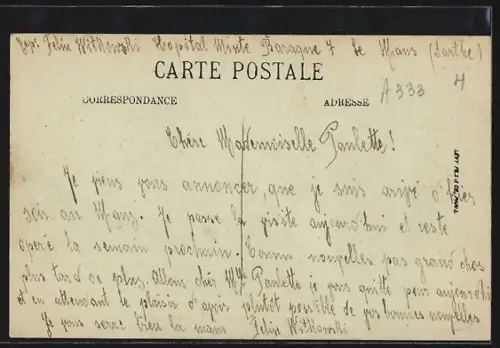 Exp. Felix Witkowski Hopital Mixte Baraque 7 Le Mans (Sarthe)
CARTE POSTALE
A 333
H
CORRESPONDANCE ADRESSE
Chère Mademoiselle Paulette!
Je viens vous annoncer, que je suis arivé d'hier
soir au Mans. Je passe la visite aujourd'hui et reste
operé la semain prochain. Comm nouvelles pas grand chos
plus tard de plus. Allons chér Mlle Paulette je vous quitte pour aujourd'hui
et en attendant le plaisir d'avoir plutôt possible de vos bonnes nouvelles
Je vous serre bien la main Felix Witkowski